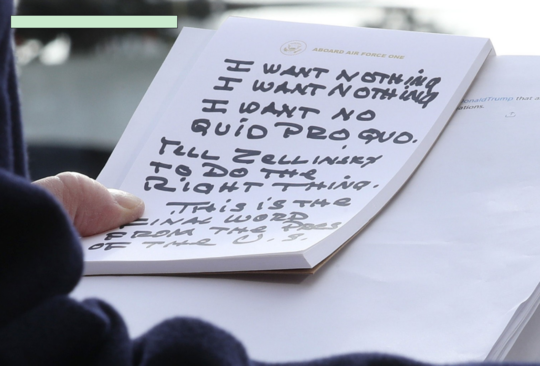 ABOARD AIR FORCE ONE
I WANT NOTHING
I WANT NOTHING
I WANT NO
QUID PRO QUO.
TELL ZELLINSKY
TO DO THE
RIGHT THING.
THIS IS THE
FINAL WORD
FROM THE PRES
OF THE U.S.
onaldTrump that a
ations.